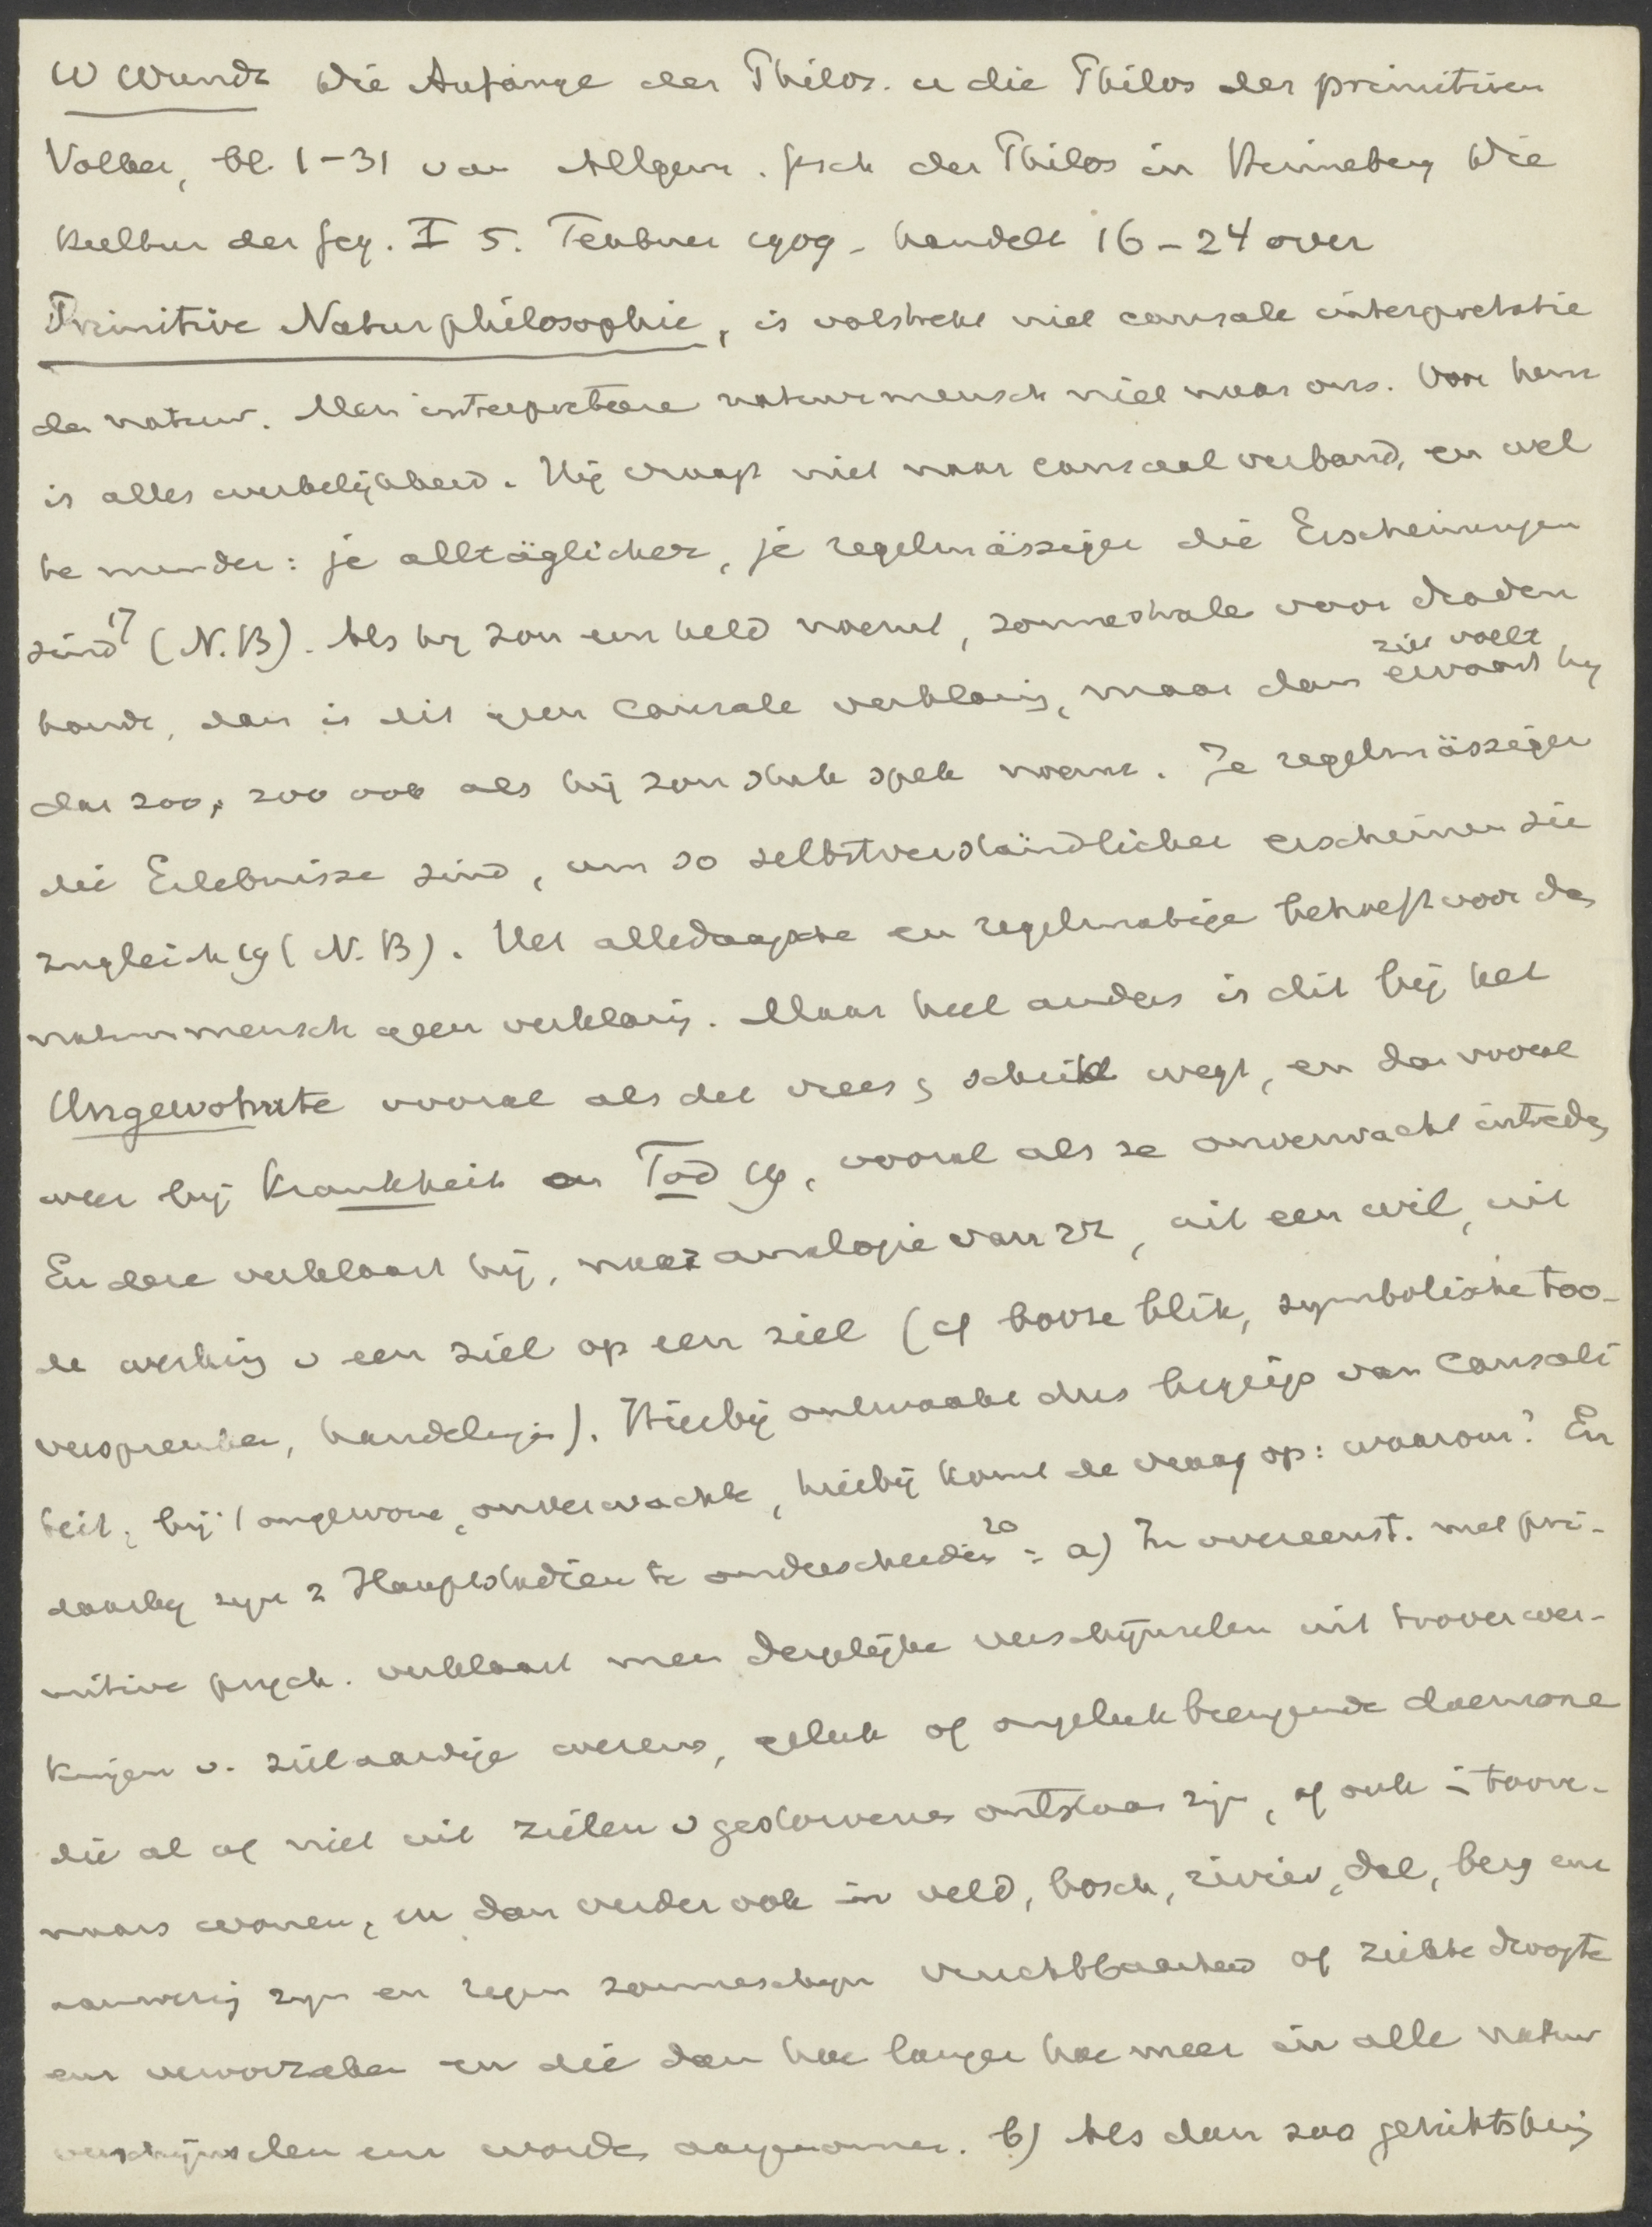 W Wundt Die Anfänge der Philos. u die Philos der primitiven
Volker, bl. 1-31 van Allgem. gsch der Philos in Hinneberg Die
Kultur der Geg. I 5. Teubner 1909 - handelt 16-24 over
Primitive Naturphilosophie, is volstrekt niet causale interpretatie
der natuur. Men interpretere natuurmensch niet naar ons. Voor hem
is alles werkelijkheid. Hij vraagt niet naar causaal verband, en wel
te minder: je alltäglicher, je regelmässiger die Erscheinungen
sind 17 (N.B). Als hij zon een held noemt, zonnestralen voor draden
houdt, dan is dit geen causale verklaring, maar dan ervaart hij
ziet voelt
dat zoo, zoo ook als hij zon stuk spek noemt. Je regelmässiger
die Erlebnisse sind, um so selbstverständlicher erscheinen sie
zugleich 19 (N.B). Het alledaagsche en regelmatige behoeft voor de
natuurmensch geen verklaring. Maar heel anders is dit bij het
Ungewohnte vooral als det vrees, schrik wegt, en dan vooral
weer bij Krankheit en Tod 19, vooral als ze onverwacht intreden
En deze verklaart hij, naar analogie van zz, uit een wil, uit
de werking v een ziel op een ziel (cf booze blik, symbolische too-
verspreuken, handelingen). Hierbij ontwaakt dus begrip van Causali
teit, bij 't ongewone, onverwachte, hierbij komt de vraag op: waarom? En
daarbij zijn 2 Hauptstadien te onderscheiden 20: a) In overeenst. met pri-
mitive psych. verklaart men dergelijke verschijnselen uit tooverwer-
kingen v. zielaardige wezens, geluk of ongeluk brengende daemone
die al of niet uit zielen v gestorvenen ontstaan zijn, of ook in toove-
naars wonen, en dan verder ook in veld, bosch, rivier, dal, berg enz
aanwezig zijn en regen zonneschijn vruchtbaarheid of ziekte droogte
enz veroorzaken en die dan hoe langer hoe meer in alle natuur
verschijnselen enz worden aangenomen. b) Als dan zoo gelukts